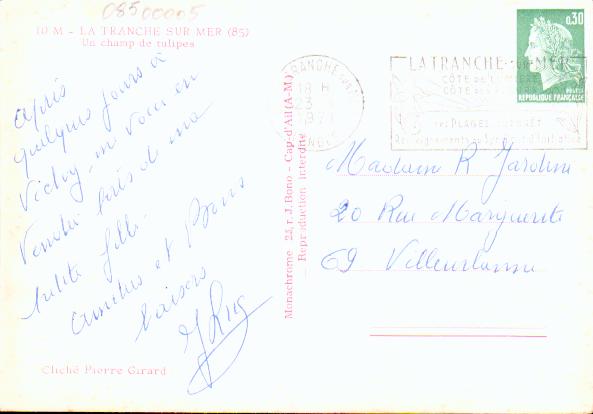 08500005
10 M - LA TRANCHE SUR MER (85)
Un champ de tulipes
après
quelques jours à
Vichy, me voici en
Vendée près de ma
petite fille.
Amitiés et Bons
baisers
Cliché Pierre Girard
Monachrome - 25, r. J. Bono - Cap-d'Ail (A.-M.)
Reproduction interdite
18 H
23
1971
LA TRANCHE-SUR-MER
CÔTE DE LUMIÈRE
0,30
POSTES
REPUBLIQUE FRANÇAISE
Madame R Jardin
20 Rue Marguerite
69 Villeurbanne